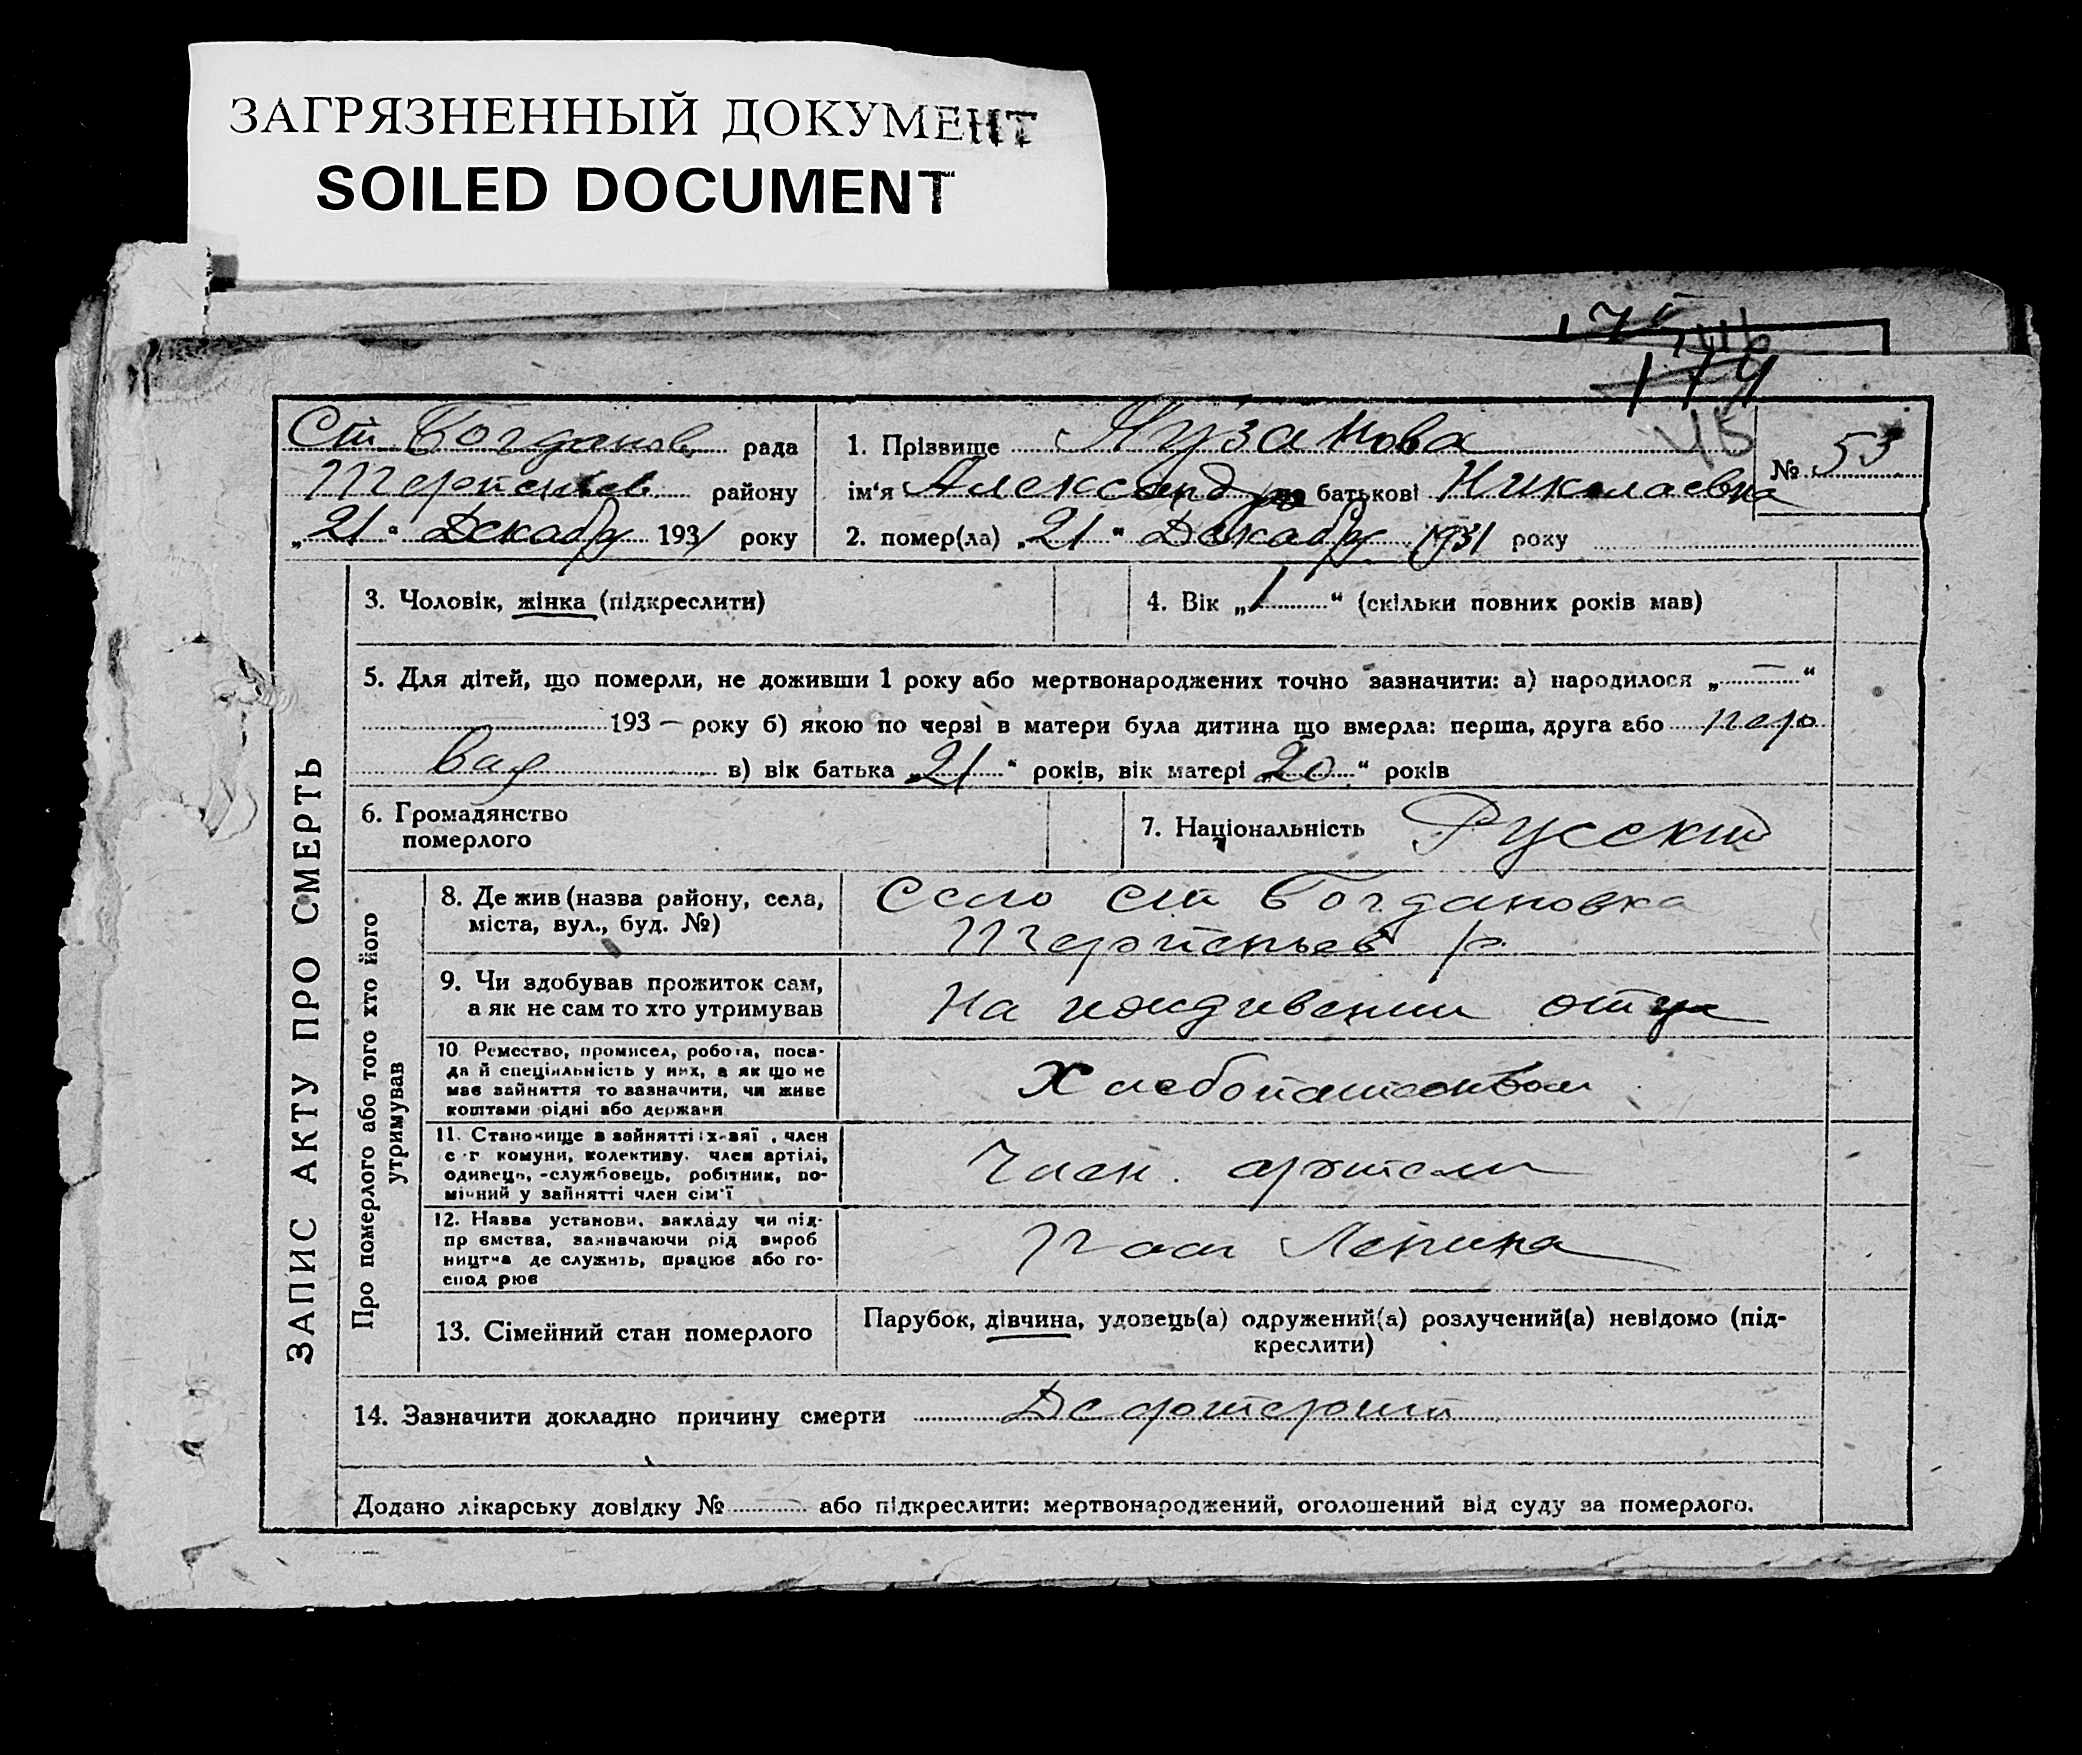 ЗАГРЯЗНЕННЫЙ ДОКУМЕНТ
SOILED DOCUMENT
174
Ст Богданов рада
Терпеньев району
„21“ Декабр 1931 року
1. Прізвище Музанова
ім'я Александра по батькові Николаевна
2. помер(ла) „21“ Декабр 1931 року
№ 53
45
ЗАПИС АКТУ ПРО СМЕРТЬ
3. Чоловік, жінка (підкреслити)
4. Вік „1“ (скільки повних років мав)
5. Для дітей, що померли, не доживши 1 року або мертвонароджених точно зазначити: а) народилося „—“
193 — року б) якою по черзі в матери була дитина що вмерла: перша, друга або пер
вая в) вік батька „21“ років, вік матері „20“ років
6. Громадянство
померлого
7. Національність Русский
Про померлого або того хто його
утримував
8. Де жив (назва району, села,
міста, вул., буд. №)
Село Ст Богдановка
Терпеньев р.
9. Чи здобував прожиток сам,
а як не сам то хто утримував
На иждивении отца
10. Ремество, промисел, робота, поса-
да й спеціяльність у них, а як що не
має зайняття то зазначити, чи живе
коштами рідні або держави
Хлебопашеством
11. Становище в зайнятті: х-зяї , член
с-г комуни, колективу, член артілі,
одинець, -службовець, робітник, по-
мічний у зайнятті член сім'ї
Член. артели
12. Назва установи, закладу чи під-
пр ємства, зазначаючи рід вироб
ництва де служить, працює або го-
спод рює
Ленина
13. Сімейний стан померлого
Парубок, дівчина, удовець(а) одружений(а) розлучений(а) невідомо (під-
креслити)
14. Зазначити докладно причину смерти Дефтерит
Додано лікарську довідку № — або підкреслити: мертвонароджений, оголошений від суду за померлого.